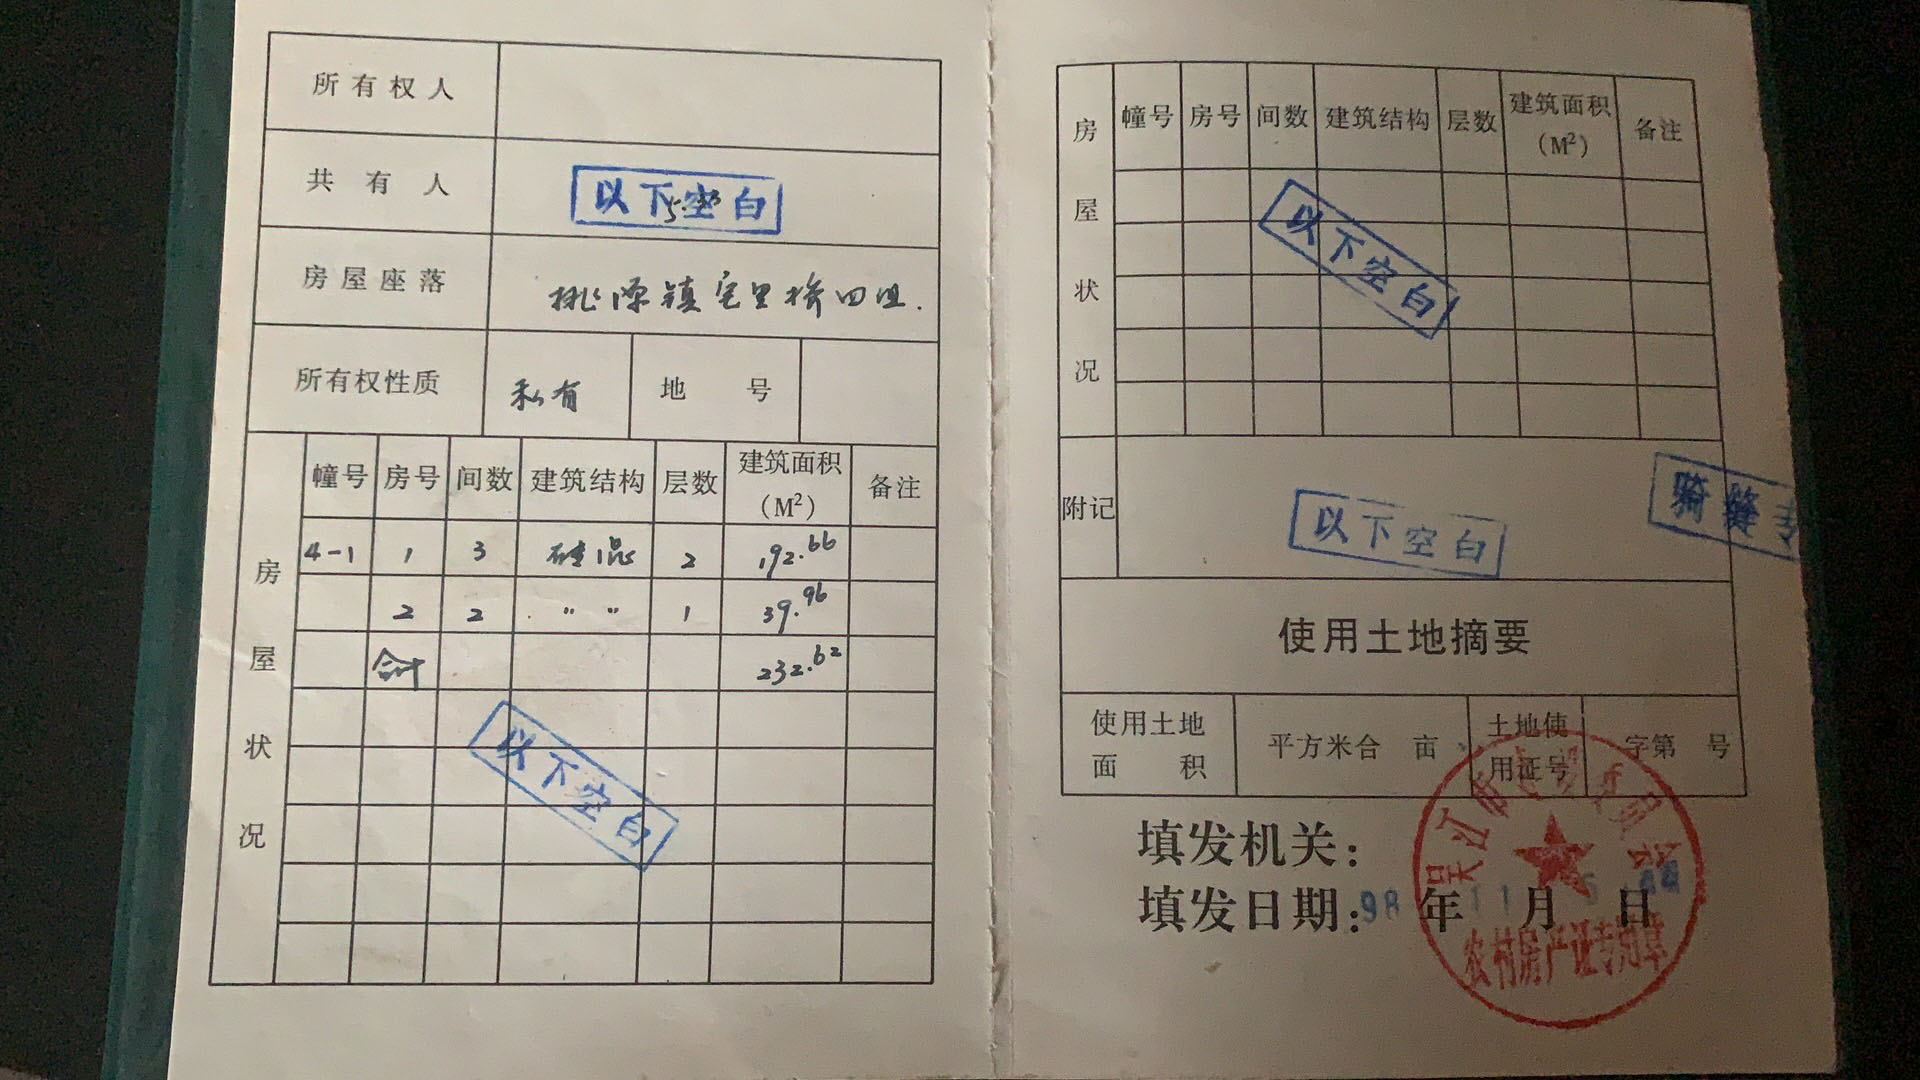 所有权人
共有人 以下空白
房屋座落 桃源镇宅里桥四组.
所有权性质 私有 地号
房屋状况
幢号 房号 间数 建筑结构 层数 建筑面积(M²) 备注
4-1 1 3 砖混 2 192.66
2 2 〃 〃 1 39.96
合计 232.62
以下空白
房屋状况
幢号 房号 间数 建筑结构 层数 建筑面积(M²) 备注
以下空白
附记 以下空白
骑缝专
使用土地摘要
使用土地面积 平方米合 亩 土地使用证号 字第 号
填发机关:
填发日期:98年11月 日
吴江市建设委员会
农村房产证专用章